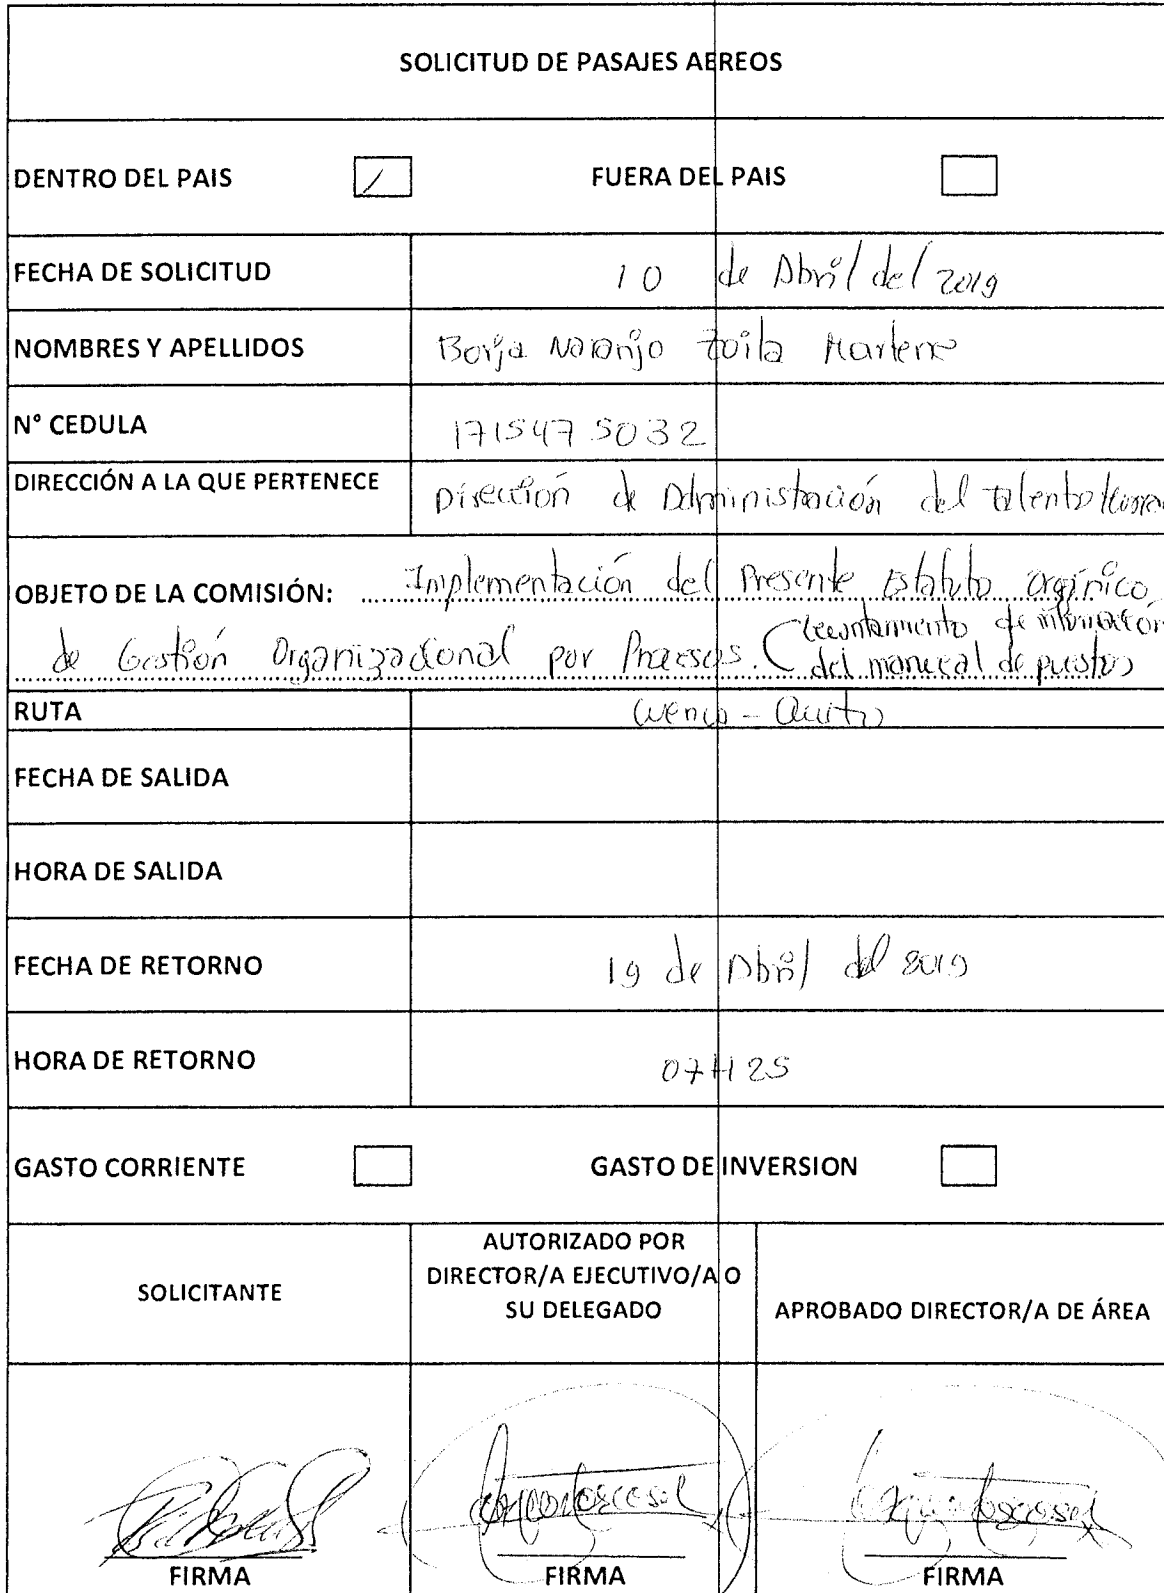 SOLICITUD DE PASAJES AEREOS
DENTRO DEL PAIS / FUERA DEL PAIS
FECHA DE SOLICITUD 10 de Abril del 2019
NOMBRES Y APELLIDOS Borja Naranjo Zoila Marlene
N° CEDULA 1715475032
DIRECCIÓN A LA QUE PERTENECE Dirección de Administración del talento
OBJETO DE LA COMISIÓN: Implementación del Presente Estatuto orgánico
de Gestión Organizacional por Procesos. (levantamiento de información
del manual de puestos
RUTA Cuenca - Quito
FECHA DE SALIDA
HORA DE SALIDA
FECHA DE RETORNO 19 de Abril del 2019
HORA DE RETORNO 07H25
GASTO CORRIENTE GASTO DE INVERSION
SOLICITANTE
AUTORIZADO POR
DIRECTOR/A EJECUTIVO/A O
SU DELEGADO
APROBADO DIRECTOR/A DE ÁREA
FIRMA FIRMA FIRMA